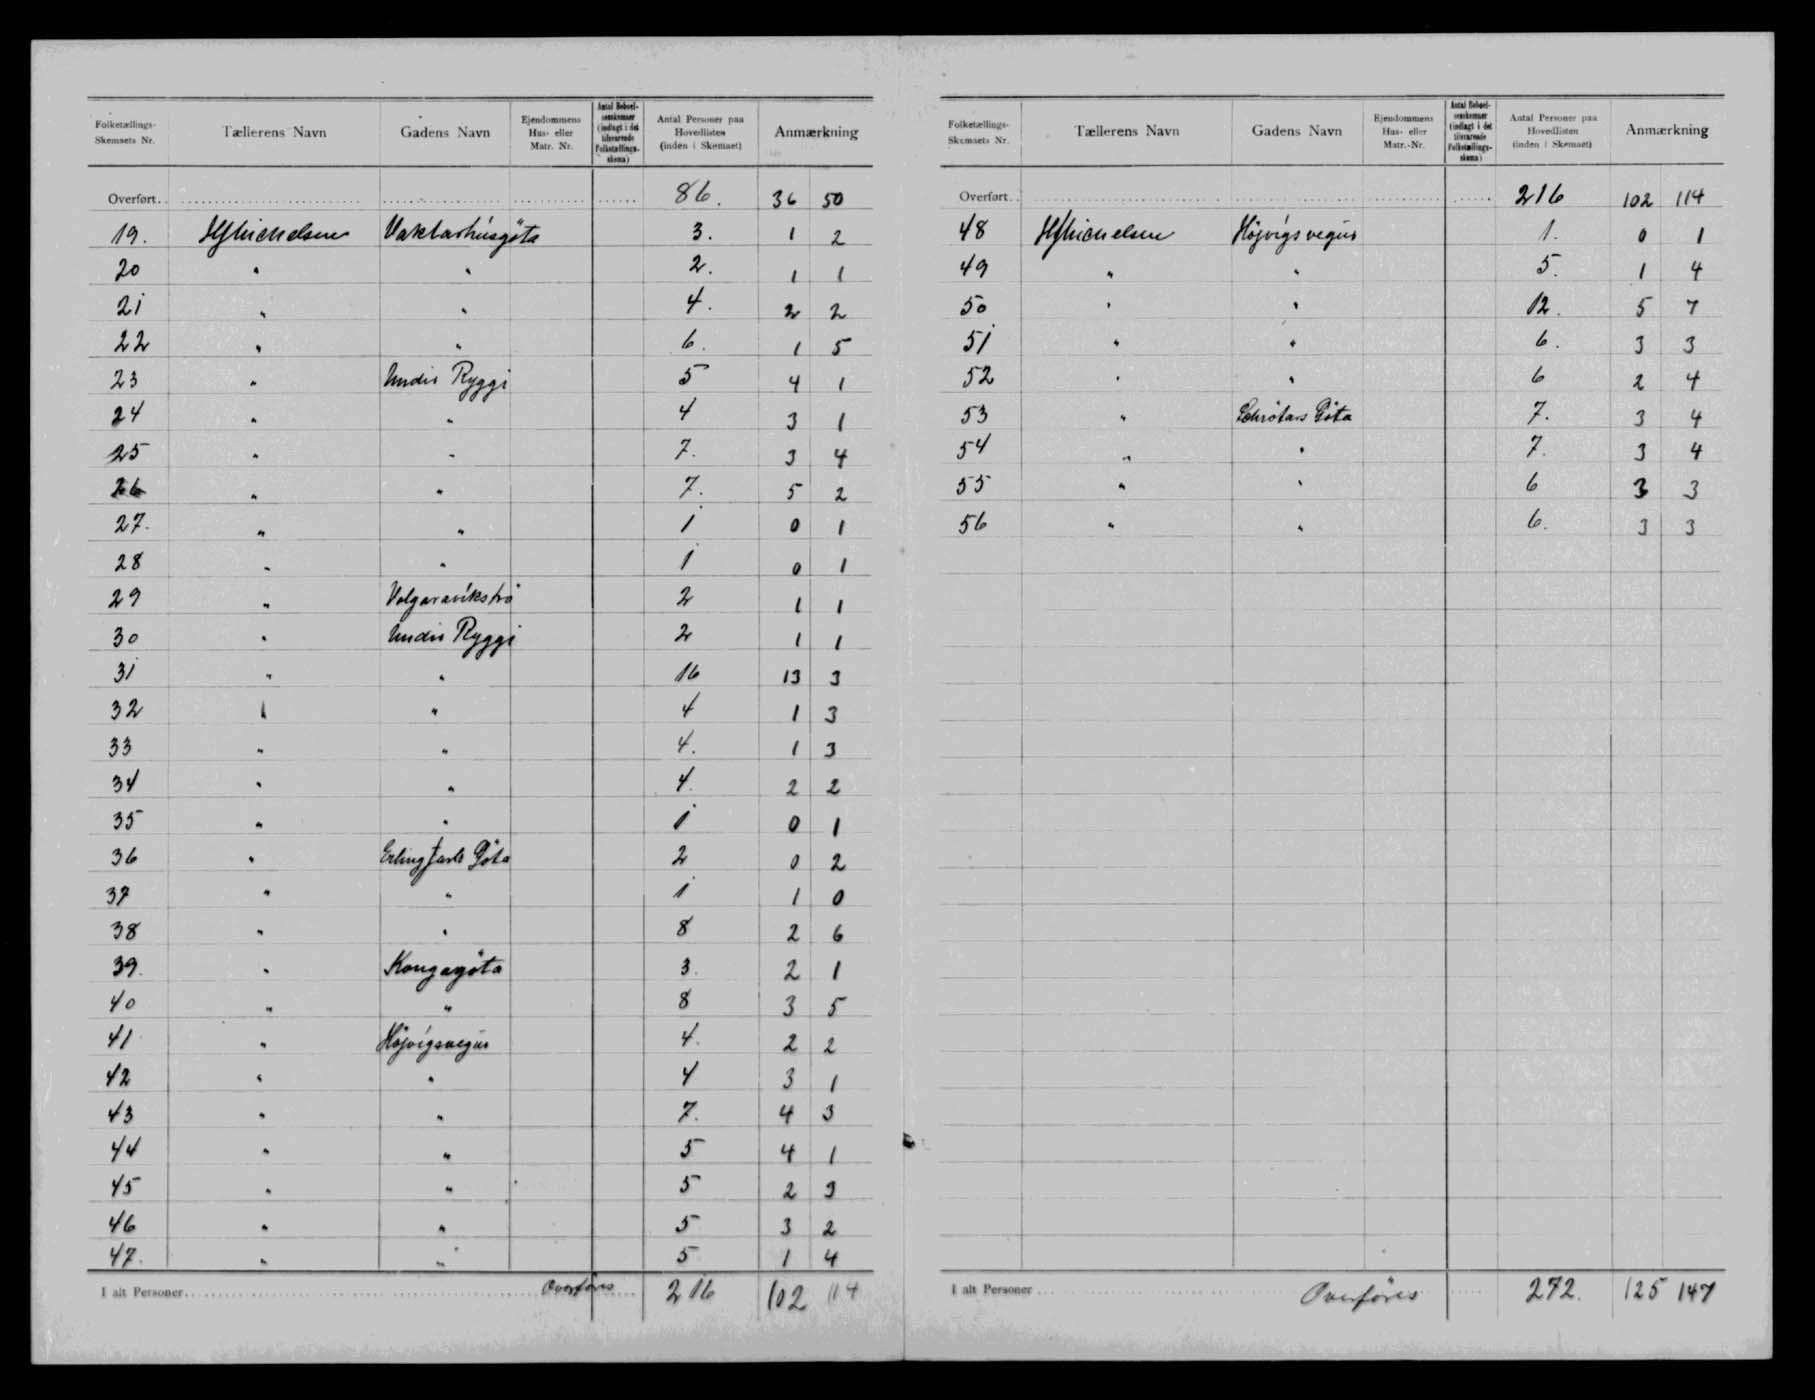 Folketællings-Skemaets Nr. Tællerens Navn Gadens Navn Ejendommens Hus- eller Matr. Nr. Antal Beboelsesskemaer (indlagt i det tilsvarende Folketællingsskema) Antal Personer paa Hovedlisten (inden i Skemaet) Anmærkning
Overført.. 86. 36 50
19. HJMichelsen Vaktarhúsgöta 3. 1 2
20 " " 2. 1 1
21 " " 4. 2 2
22 " " 6. 1 5
23 " Undir Ryggi 5 4 1
24 " " 4 3 1
25 " " 7. 3 4
26 " " 7. 5 2
27. " " 1 0 1
28 " " 1 0 1
29 " 2 1 1
30 " Undir Ryggi 2 1 1
31 " " 16 13 3
32 " " 4 1 3
33 " " 4. 1 3
34 " " 4. 2 2
35 " " 1 0 1
36 " Erling Jarls Göta 2 0 2
37 " " 1 1 0
38 " " 8 2 6
39. " Kongagöta 3. 2 1
40 " " 8 3 5
41 " Höjvígsvegur 4. 2 2
42 " " 4 3 1
43 " " 7. 4 3
44 " " 5 4 1
45 " " 5 2 3
46 " " 5 3 2
47. " " 5 1 4
I alt Personer Overföres 216 102 114
Folketællings-Skemaets Nr. Tællerens Navn Gadens Navn Ejendommens Hus- eller Matr.-Nr. Antal Beboelsesskemaer (indlagt i det tilsvarende Folketællingsskema) Antal Personer paa Hovedlisten (inden i Skemaet) Anmærkning
Overført.. 216 102 114
48 HJMichelsen Höjvígsvegur 1. 0 1
49 " " 5. 1 4
50 " " 12. 5 7
51 " " 6. 3 3
52 " " 6 2 4
53 " Göta 7. 3 4
54 " " 7. 3 4
55 " " 6 3 3
56 " " 6. 3 3
I alt Personer Overföres 272. 125 147